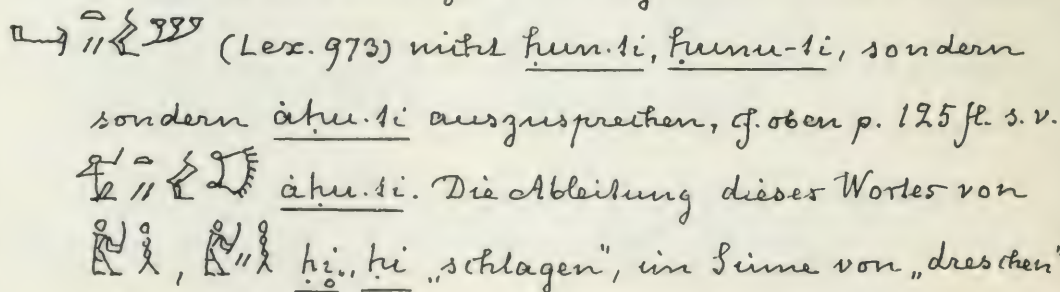 (Lex. 973) nicht ḥun·ti, ḥunu-ti, sondern
sondern àḥu·ti auszusprechen, cf. oben p. 125 fl. s. v.
àḥu·ti. Die Ableitung dieses Wortes von
ḥi, ḥi „schlagen", im Sinne von „dreschen"